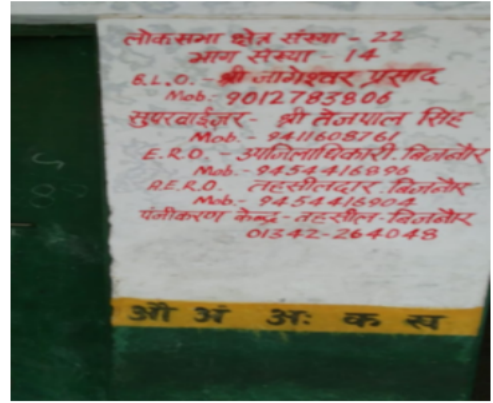 लोकसभा क्षेत्र संख्या - 22
भाग संख्या - 14
B.L.O. - श्री जागेश्वर प्रसाद
Mob. - 9012783806
सुपरवाईज़र - श्री तेजपाल सिंह
Mob. - 9411608761
E.R.O. - उपजिलाधिकारी. बिजनौर
Mob. - 9454416896
A.E.R.O. तहसीलदार. बिजनौर
Mob. - 9454416904
पंजीकरण केन्द्र - तहसील - बिजनौर
01342-264048
औ अं अः क ख